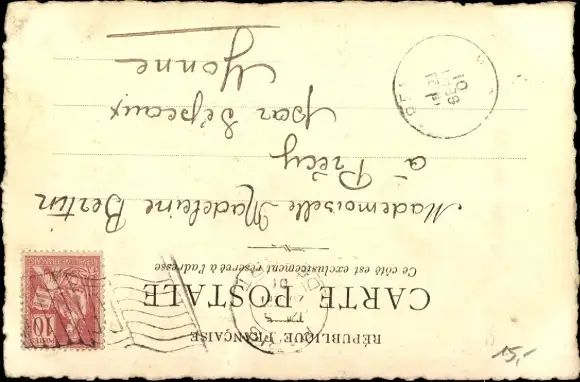 RÉPUBLIQUE FRANÇAISE
CARTE POSTALE
Ce côté est exclusivement réservé à l'adresse
Mademoiselle Madeleine Bertin
à Précy
par Sépeaux
Yonne
10
POSTES
15,-